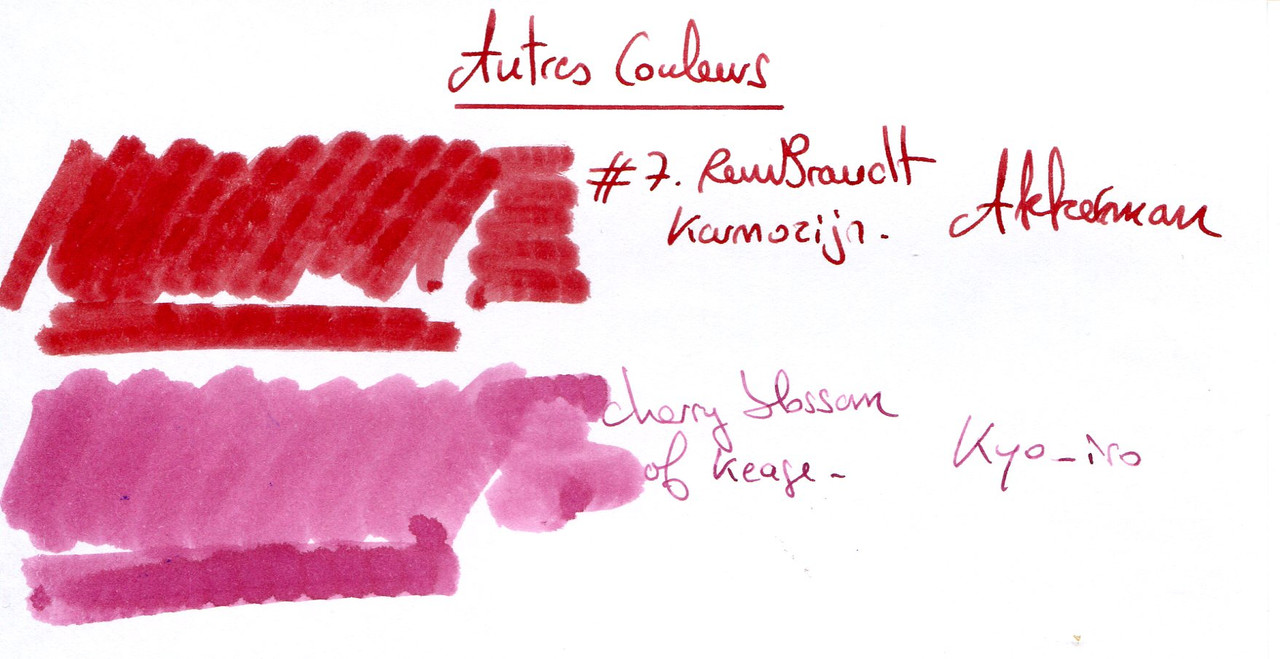 Autres Couleurs
#7. RemBrandt Akkerman
Karmozijn.
cherry blossom
of Keage - Kyo-iro